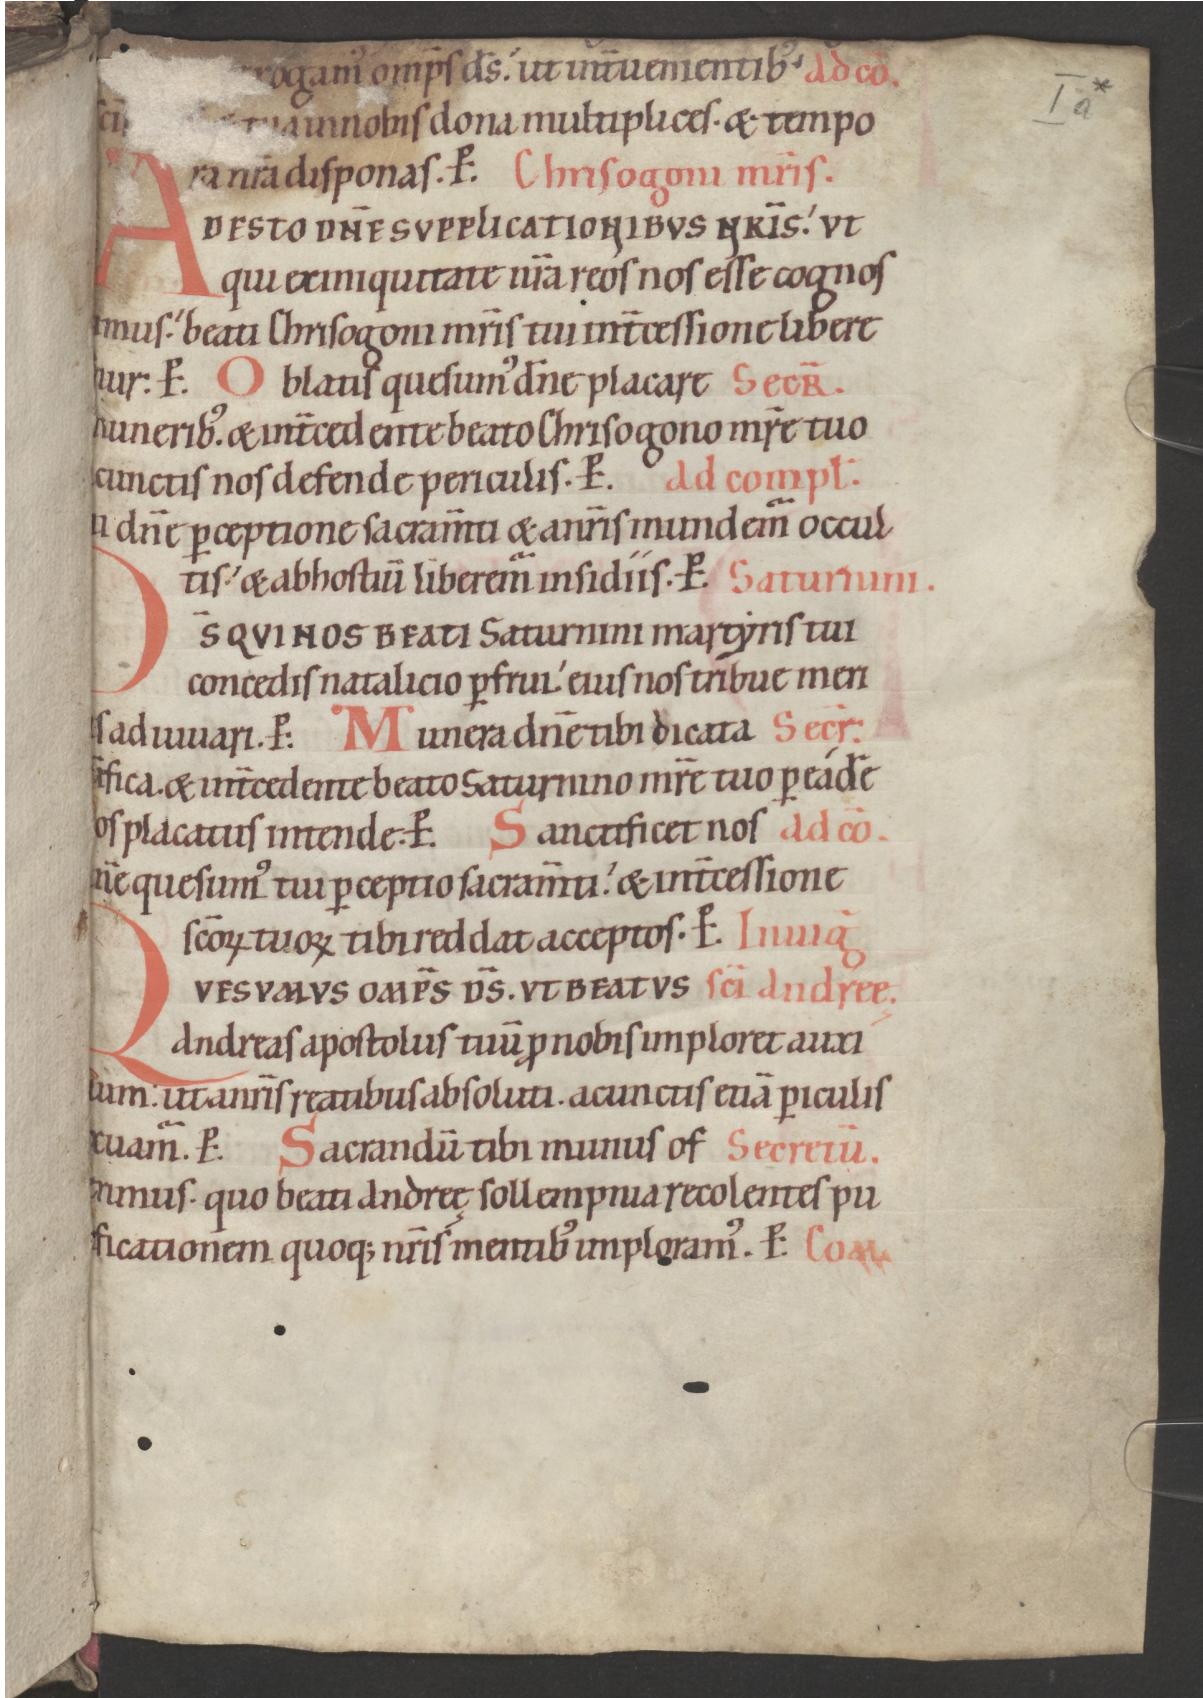 rogam᷒ omp̄s ds̄. ut int̄uenientib᷒ ad cō.
sc̄i tua in nobis dona multiplices. & tempo
ra nr̄a disponas. P̄. Chrisogoni mr̄is.
ADESTO DN̄E SUPPLICATIONIBUS NR̄IS. UT
qui ex iniquitate nr̄a reos nos esse cognos
imus. beati Chrisogoni mr̄is tui int̄cessione libere
mur. P̄. Oblatis quesum᷒ dn̄e placare Secr̄.
munerib᷒. & int̄cedente beato Chrisogono mr̄e tuo
cunctis nos defende periculis. P̄. ad compl̄.
ui dn̄e ꝑceptione sacram̄ti & a nr̄is mundem̄ occul
tis. & ab hostiū liberem̄ insidiis. P̄. Saturnini.
DS̄ QUI NOS BEATI Saturnini martyris tui
concedis natalicio ꝑfrui. eius nos tribue meri
is adiuuari. P̄. Munera dn̄e tibi dicata Secr̄.
īfica. & int̄cedente beato Saturnino mr̄e tuo ꝑ eadē
os placatus intende. P̄. Sanctificet nos ad cō.
n̄e quesum᷒ tui ꝑceptio sacram̄ti. & int̄cessione
sc̄oꝝ tuoꝝ tibi reddat acceptos. P̄. In uiḡ
QUESUMUS OMP̄S DS̄. UT BEATUS sc̄i andree.
Andreas apostolus tuū ꝓ nobis imploret auxi
ium. ut a nr̄is reatibus absoluti. a cunctis etiā ꝑiculis
xuam̄. P̄. Sacrandū tibi munus of Secretū.
rimus. quo beati andreę sollempnia recolentes pu
ficationem quoq; nr̄is mentib᷒ imploram᷒. P̄. Com
Ia*